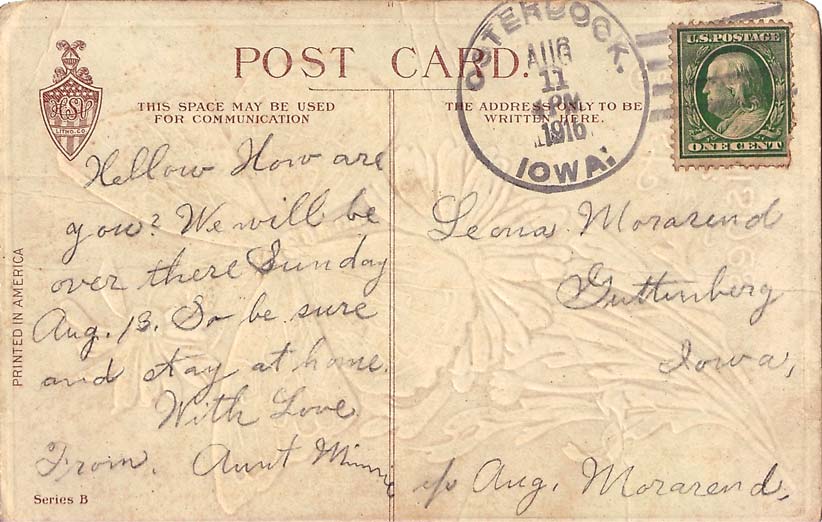 POST CARD.
HSV
LITHO. CO.
THIS SPACE MAY BE USED
FOR COMMUNICATION
THE ADDRESS ONLY TO BE
WRITTEN HERE.
OSTERDOCK,
AUG
11
PM
1916
IOWA.
U.S. POSTAGE
ONE CENT
PRINTED IN AMERICA
Hellow How are
you? We will be
over there Sunday
Aug. 13. So be sure
and stay at home.
With Love
From. Aunt Minnie
Series B
Leona Morarend
Guttenberg
Iowa,
c/o Aug. Morarend,